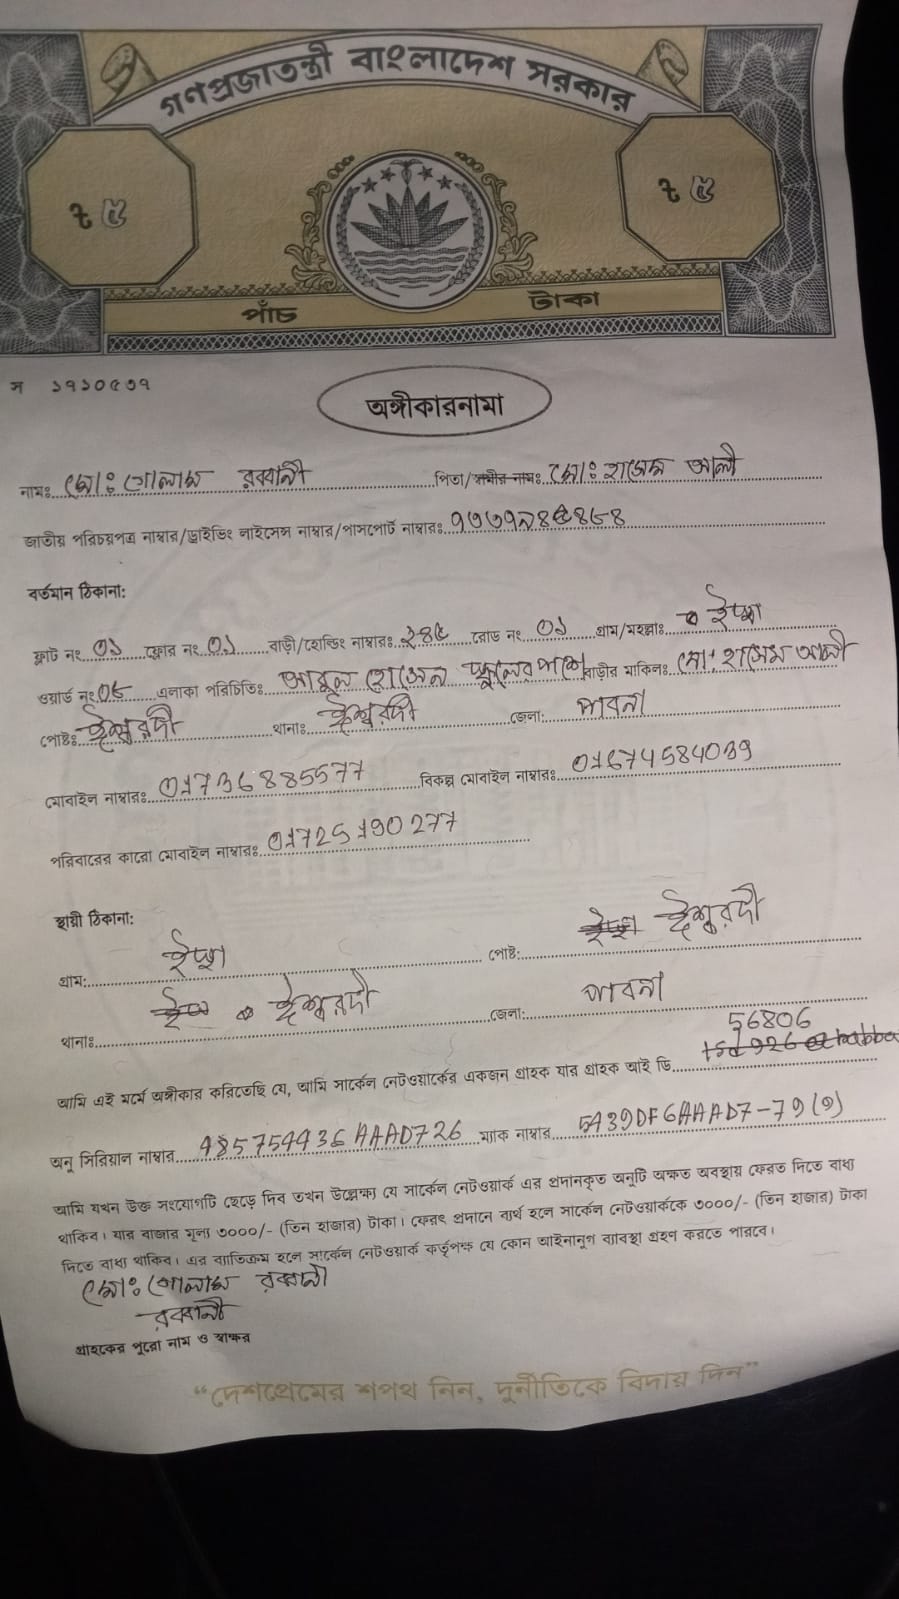 গণপ্রজাতন্ত্রী বাংলাদেশ সরকার
ট ৫ ট ৫
পাঁচ টাকা
স ১৭১০৫৩৭
অঙ্গীকারনামা
নামঃ মোঃ গোলাম রব্বানী পিতা/স্বামীর নামঃ মোঃ হাসেম আলী
জাতীয় পরিচয়পত্র নাম্বার/ড্রাইভিং লাইসেন্স নাম্বার/পাসপোর্ট নাম্বারঃ
বর্তমান ঠিকানা:
ফ্লাট নং ০১ ফ্লোর নং ০১ বাড়ী/হোল্ডিং নাম্বারঃ ২৪৫ রোড নং ০১ গ্রাম/মহল্লাঃ
ওয়ার্ড নং ০৮ এলাকা পরিচিতিঃ আবুল হোসেন স্কুলের পাশে বাড়ীর মালিকঃ মোঃ হাসেম আলী
পোষ্টঃ ঈশ্বরদী থানাঃ ঈশ্বরদী জেলা: পাবনা
মোবাইল নাম্বারঃ 01736885577 বিকল্প মোবাইল নাম্বারঃ 01674584039
পরিবারের কারো মোবাইল নাম্বারঃ 01725190277
স্থায়ী ঠিকানা:
গ্রাম: পোষ্ট: ঈশ্বরদী
থানাঃ ঈশ্বরদী জেলা: পাবনা
56806
আমি এই মর্মে অঙ্গীকার করিতেছি যে, আমি সার্কেল নেটওয়ার্কের একজন গ্রাহক যার গ্রাহক আই ডি
অনু সিরিয়াল নাম্বার 485754436AAAD726 ম্যাক নাম্বার 5A39DF6AAAD7-79(9)
আমি যখন উক্ত সংযোগটি ছেড়ে দিব তখন উল্লেক্ষ্য যে সার্কেল নেটওয়ার্ক এর প্রদানকৃত অনুটি অক্ষত অবস্থায় ফেরত দিতে বাধ্য
থাকিব। যার বাজার মূল্য ৩০০০/- (তিন হাজার) টাকা। ফেরৎ প্রদানে ব্যর্থ হলে সার্কেল নেটওয়ার্ককে ৩০০০/- (তিন হাজার) টাকা
দিতে বাধ্য থাকিব। এর ব্যাতিক্রম হলে সার্কেল নেটওয়ার্ক কর্তৃপক্ষ যে কোন আইনানুগ ব্যাবস্থা গ্রহণ করতে পারবে।
মোঃ গোলাম রব্বানী
রব্বানী
গ্রাহকের পুরো নাম ও স্বাক্ষর
“দেশপ্রেমের শপথ নিন, দুর্নীতিকে বিদায় দিন”